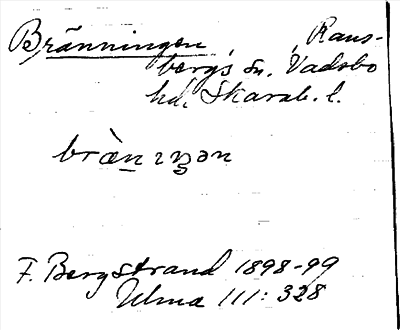 Bränningen, Rans-
bergs sn, Vadsbo
hd, Skarab. l.
bræ̀n̠ɪŋən
F. Bergstrand 1898-99
Ulma 111:328